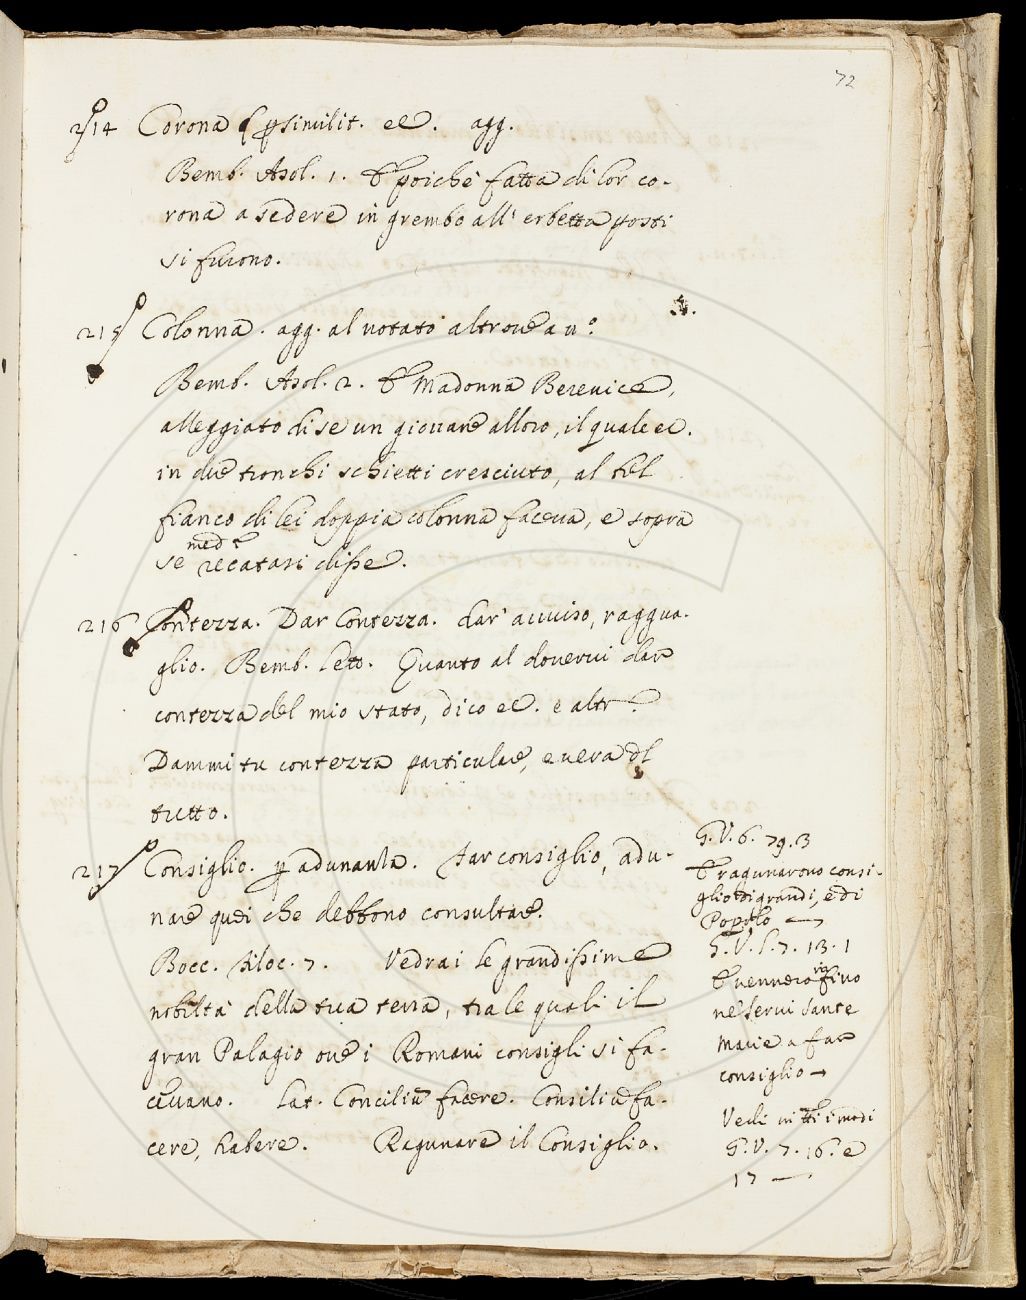 72
214 Corona p similit. ec. agg.
Bemb. Asol. 1. E poiche fatta di lor co-
rona a sedere in grembo all' erbetta posti
si furono.
215 Colonna. agg. al notato altrove a n.°
Bemb. Asol. 2. E Madonna Berenice,
alleggiato di se un giovane alloro, il quale ec.
in due tronchi schietti cresciuto, al bel
fianco di lei doppia colonna faceva, e sopra
se med.
recatasi disse.
216 Contezza. Dar Contezza. dar' avviso, raggua-
glio. Bemb. Lett. Quanto al dovervi dare
contezza del mio stato, dico ec. e altr.
Dammi tu contezza particulare, e vera dl
tutto.
217 Consiglio. p adunanza. Far consiglio, adu-
nare quei che debbono consultare.
Bocc. Filoc. 7. Vedrai le grandissime
nobiltà della tua terra, tra le quali il
gran Palagio ove i Romani consigli si fa-
cevano. Lat. Conciliū facere. Consilia fa-
cere, habere. Ragunare il Consiglio.
G.V. 6. 79. 3
E ragunarono consi-
glio di grandi, e di
Popolo
G.V. l. 7. 13. 1
E vennero
ne' Servi Sante
Marie a fare
consiglio
Vedi in i modi
G.V. 7. 16. e
17